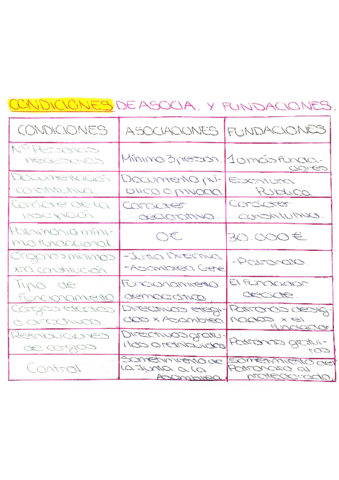 CONDICIONES DE ASOCIA. Y FUNDACIONES.
CONDICIONES ASOCIACIONES FUNDACIONES
Nº Personas necesarias
Mínimo 3 person.
1 o más funda-
dores
Documentación constitutiva
Documento pú-
blico o privado
Escritura
Pública
Carácter de la inscripción
Carácter
declarativo.
Carácter
constitutivo.
Patrimonio míni-
mo fundacional
0€
30.000€
Órganos mínimos
xra constitución
-Junta Directiva
-Asamblea Gene
-Patronato
Tipo de
Funcionamiento
Funcionamiento
democrático
El fundador
decide
Cargos electos
o directivos
Directivos elegi-
dos x Asamblea
Patronos desig-
nados x el
fundador
Retribuciones
de cargos
Directivos gratui-
tos o retribuidos
Patronos gratui-
tos
Control
Sometimiento de
la Junta a la
Asamblea
Sometimiento del
Patronato al
protectorado.